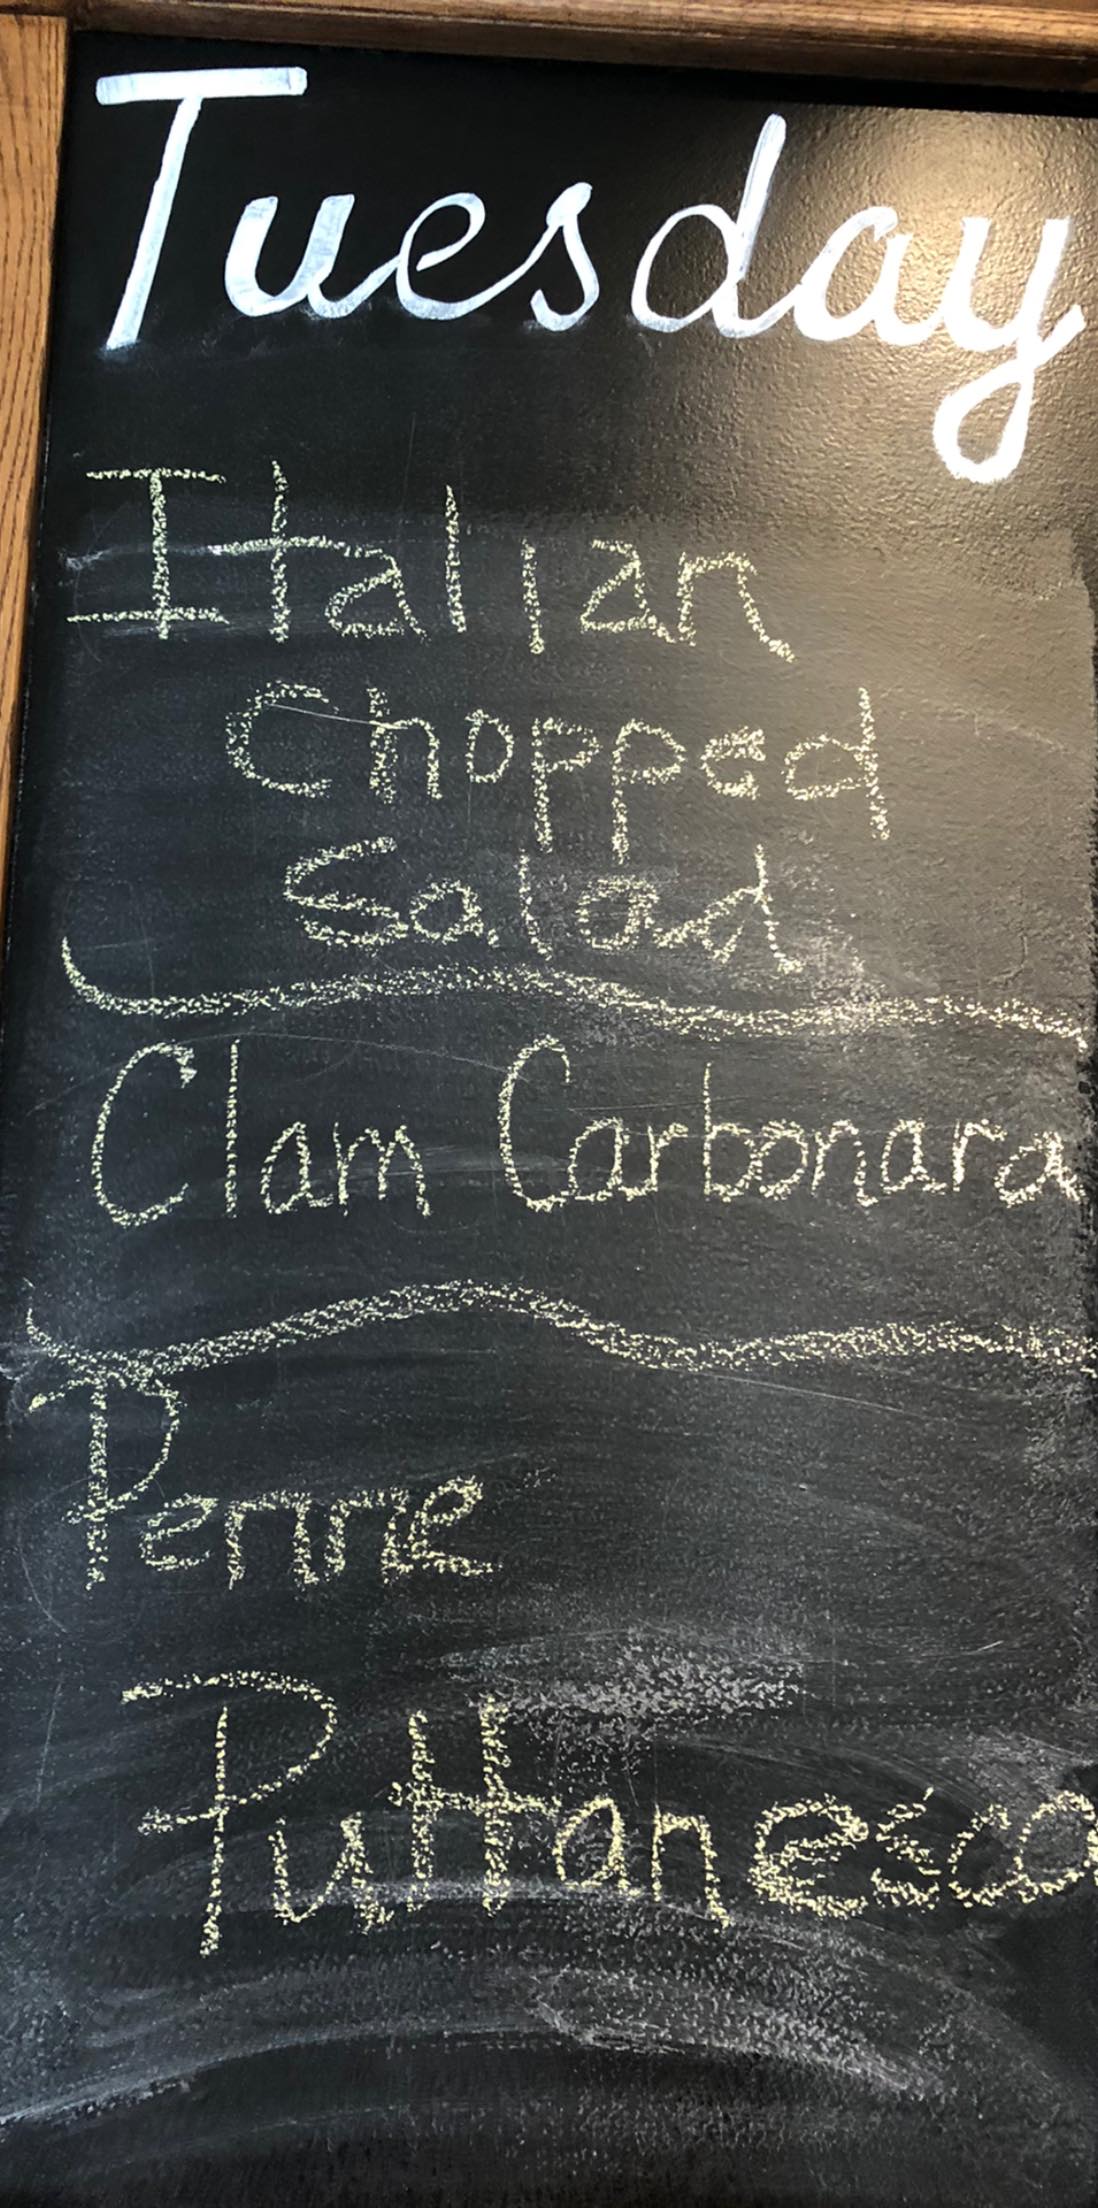 Tuesday
Italian
Chopped
Salad
Clam Carbonara
Penne
Puttanesca